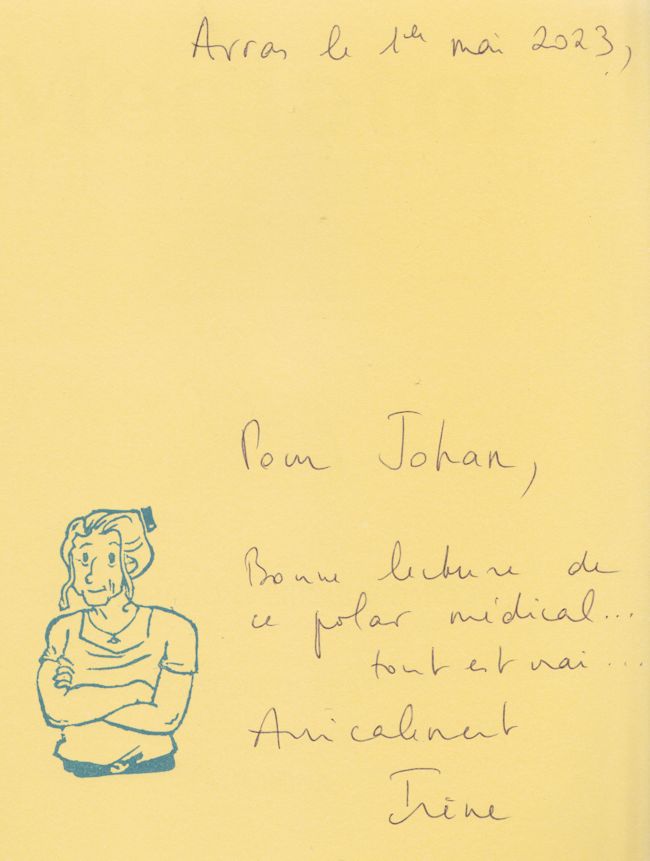 Arras le 1er mai 2023,
Pour Johan,
Bonne lecture de
ce polar médical...
tout est vrai...
Amicalement
Irène